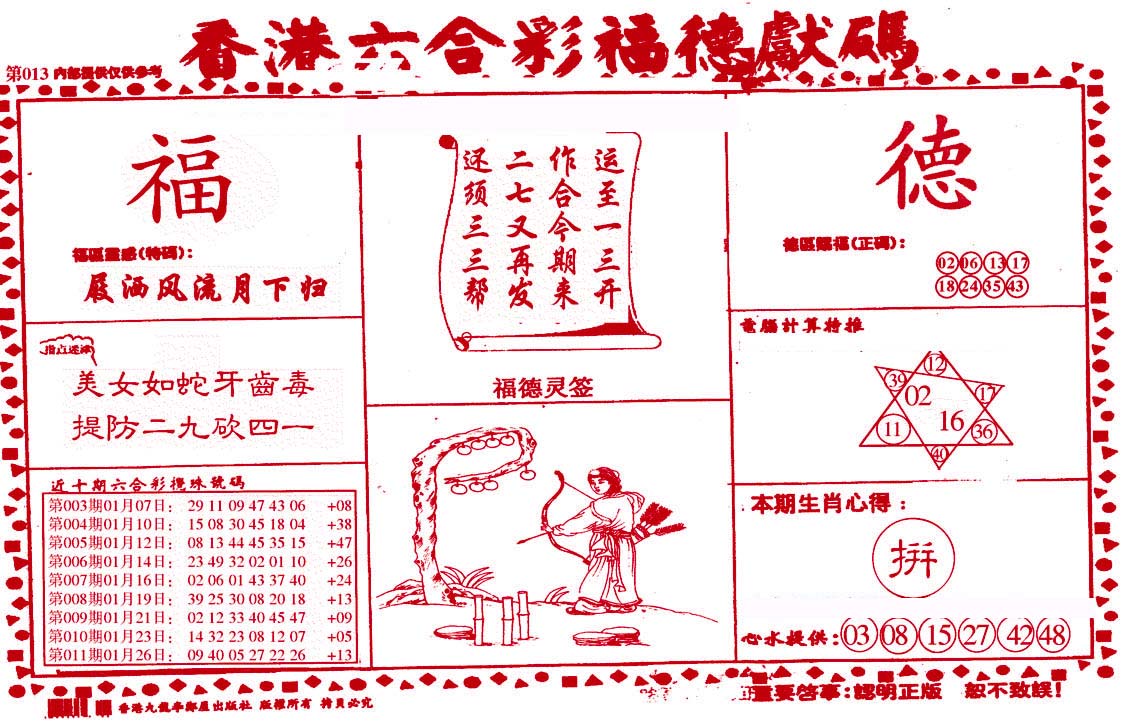 香港六合彩福德獻碼
第013 内部提供仅供参考
福
福區靈感(特碼):
屐洒风流月下归
指点迷津
美女如蛇牙齒毒
提防二九砍四一
近十期六合彩攪珠號碼
第003期01月07日: 29 11 09 47 43 06 +08
第004期01月10日: 15 08 30 45 18 04 +38
第005期01月12日: 08 13 44 45 35 15 +47
第006期01月14日: 23 49 32 02 01 10 +26
第007期01月16日: 02 06 01 43 37 40 +24
第008期01月19日: 39 25 30 08 20 18 +13
第009期01月21日: 02 12 33 40 45 47 +09
第010期01月23日: 14 32 23 08 12 07 +05
第011期01月26日: 09 40 05 27 22 26 +13
运至一三开
作合今期来
二七又再发
还须三三帮
福德灵签
德
德區賜福(正碼):
02 06 13 17
18 24 35 43
電腦計算特推
12
39 02 17
11 16 36
40
本期生肖心得:
拼
心水提供: 03 08 15 27 42 48
重要啓事:認明正版 恕不致誤!
版權所有 拷貝必究